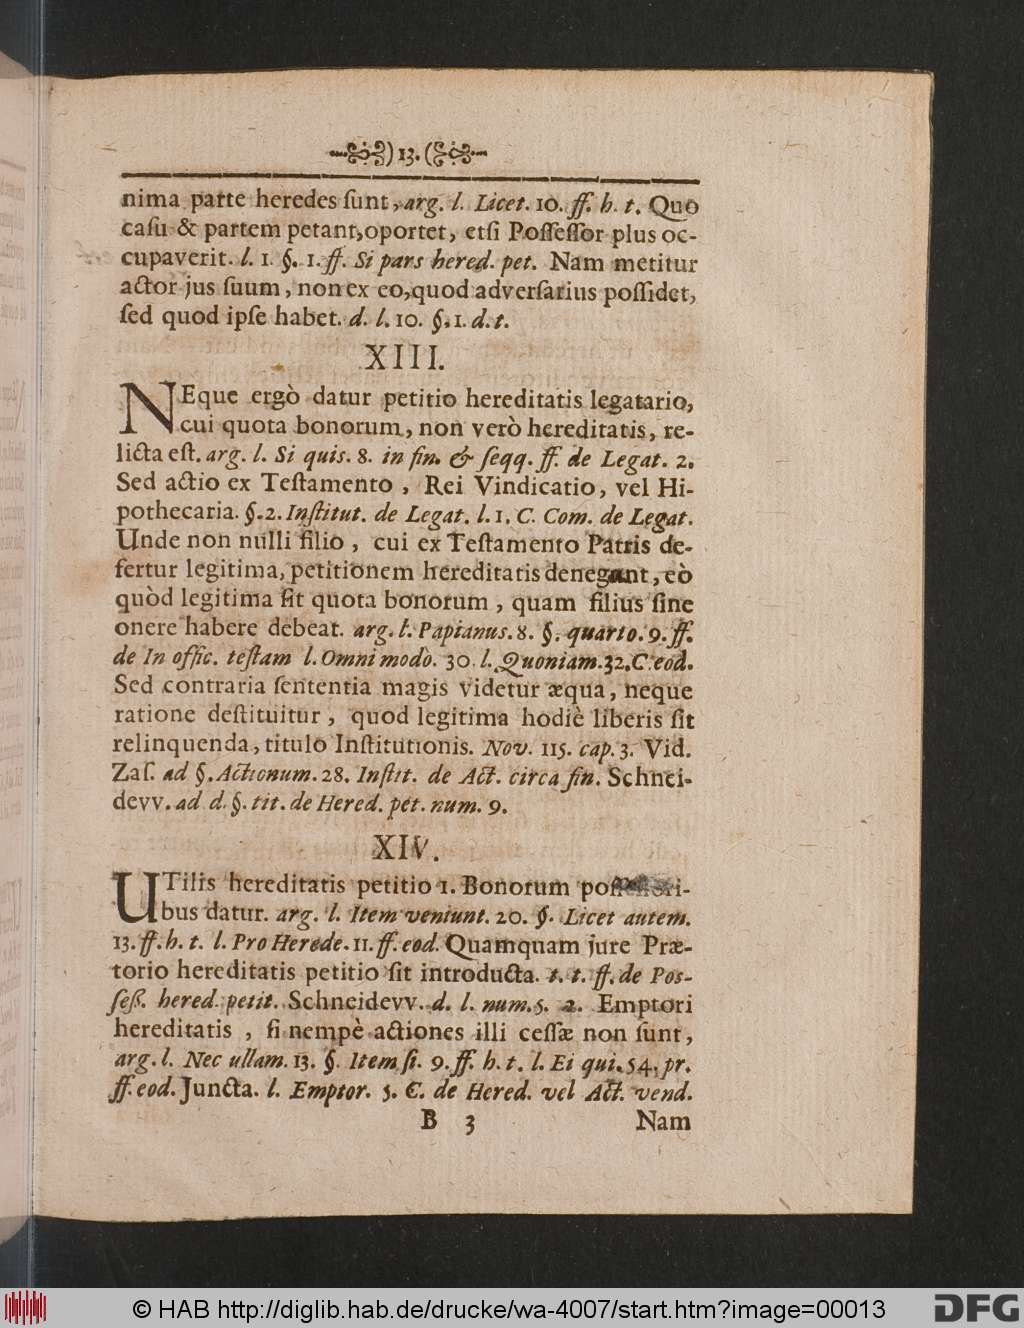 ) 13. (
nima parte heredes ſunt, arg. l. Licet. 10. ff. h. t. Quo
caſu & partem petant, oportet, etſi Poſſeſſor plus oc-
cupaverit. l. 1. §. 1. ff. Si pars hered. pet. Nam metitur
actor jus ſuum, non ex eo, quod adverſarius poſſidet,
ſed quod ipſe habet. d. l. 10. §. 1. d. t.
XIII.
NEque ergò datur petitio hereditatis legatario,
cui quota bonorum, non verò hereditatis, re-
licta eſt. arg. l. Si quis. 8. in fin. & ſeqq. ff. de Legat. 2.
Sed actio ex Teſtamento, Rei Vindicatio, vel Hi-
pothecaria. §. 2. Inſtitut. de Legat. l. 1. C. Com. de Legat.
Unde non nulli filio, cui ex Teſtamento Patris de-
fertur legitima, petitionem hereditatis denegant, eò
quòd legitima ſit quota bonorum, quam filius ſine
onere habere debeat. arg. l. Papianus. 8. §. quarto. 9. ff.
de In offic. teſtam l. Omni modò. 30. l. Quoniam. 32. C. eod.
Sed contraria ſententia magis videtur æqua, neque
ratione deſtituitur, quod legitima hodiè liberis ſit
relinquenda, titulo Inſtitutionis. Nov. 115. cap. 3. Vid.
Zaſ. ad §. Actionum. 28. Inſtit. de Act. circa fin. Schnei-
devv. ad d. §. tit. de Hered. pet. num. 9.
XIV.
UTilis hereditatis petitio 1. Bonorum
bus datur. arg. l. Item veniunt. 20. §. Licet autem.
13. ff. h. t. l. Pro Herede. 11. ff. eod. Quamquam jure Præ-
torio hereditatis petitio ſit introducta. t. t. ff. de Poſ-
ſeſſ. hered. petit. Schneidevv. d. l. num. 5. 2. Emptori
hereditatis, ſi nempè actiones illi ceſſæ non ſunt,
arg. l. Nec ullam. 13. §. Item ſi. 9. ff. h. t. l. Ei qui. 54. pr.
ff. eod. Juncta. l. Emptor. 5. C. de Hered. vel Act. vend.
B 3 Nam
© HAB http://diglib.hab.de/drucke/wa-4007/start.htm?image=00013
DFG